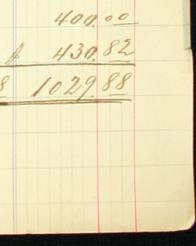 400.00
A 430.82
8 1029.88